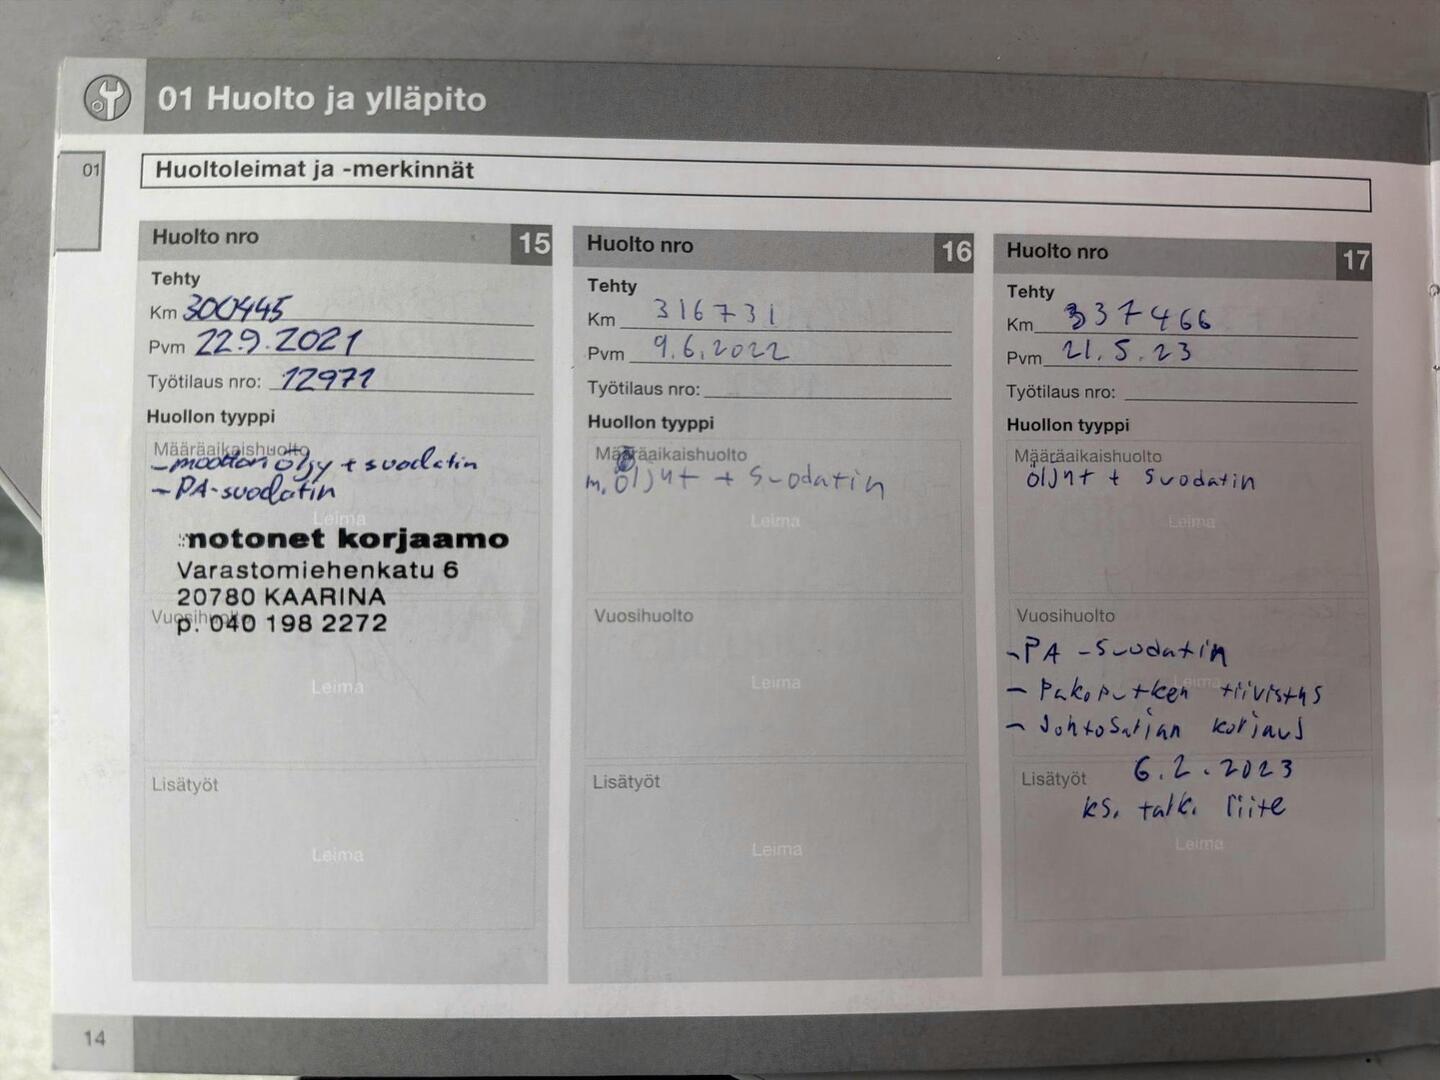 01 Huolto ja ylläpito
01
Huoltoleimat ja -merkinnät
Huolto nro 15
Tehty
Km 300445
Pvm 22.9.2021
Työtilaus nro: 12971
Huollon tyyppi
Määräaikaishuolto
-moottori öljy + suodatin
-PA-suodatin
Leima
motonet korjaamo
Varastomiehenkatu 6
20780 KAARINA
Vuosihuolto
p. 040 198 2272
Leima
Lisätyöt
Leima
Huolto nro 16
Tehty
Km 316731
Pvm 9.6.2022
Työtilaus nro:
Huollon tyyppi
Määräaikaishuolto
m. öljyt + suodatin
Leima
Vuosihuolto
Leima
Lisätyöt
Leima
Huolto nro 17
Tehty
Km 337466
Pvm 21.5.23
Työtilaus nro:
Huollon tyyppi
Määräaikaishuolto
öljyt + suodatin
Leima
Vuosihuolto
- PA -suodatin
Leima
- Pakoputken tiivistys
- Johtosarjan korjaus
6.2.2023
Lisätyöt
ks. talk. liite
Leima
14